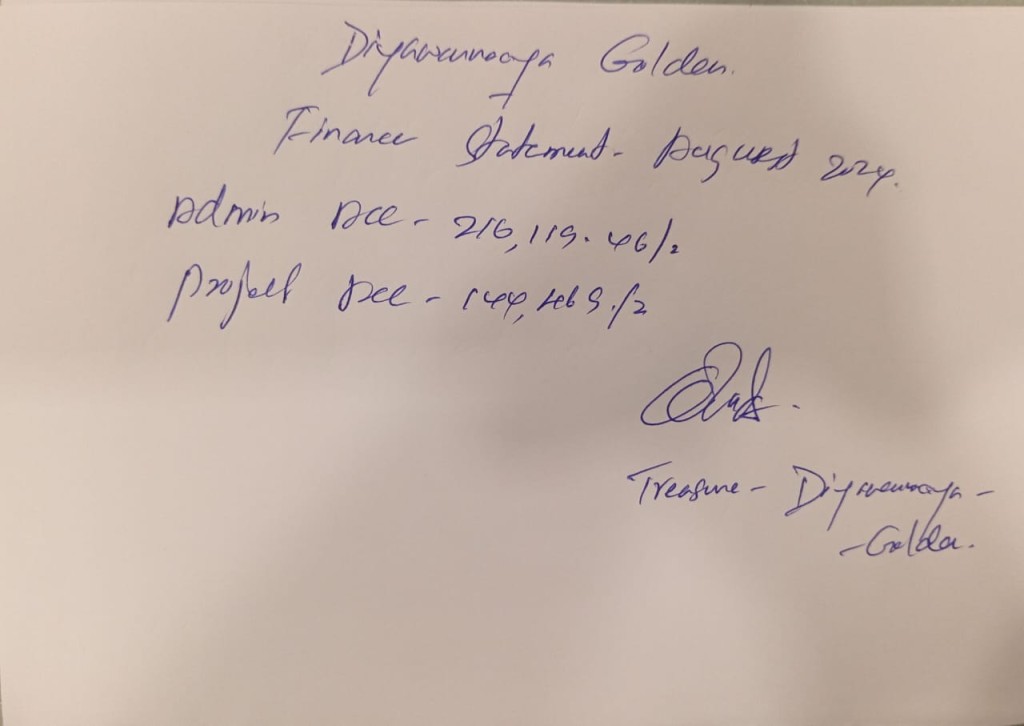 Diyawannaoya Golden.
Finance Statement - August 2024.
Admin Acc - 216,119.46/2
Project Acc - 144,469./2
Treasure - Diyawannaoya -
- Golden.